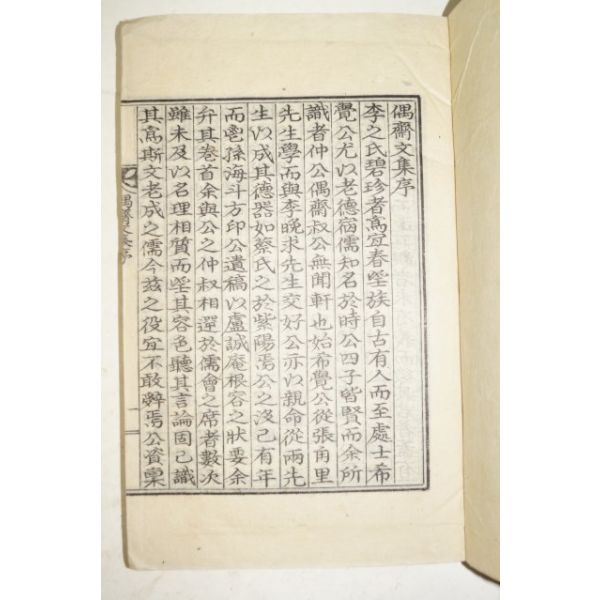 偶齋文集序
李之氏碧珍者爲宜春望族自古有人而至處士希
覺公尤以老德宿儒知名於時公四子皆賢而余所
識者仲公偶齋叔公無聞軒也始希覺公從張角里
先生學而與李晚求先生交好公亦以親命從兩先
生以成其德器如蔡氏之於紫陽焉公之沒已有年
而胤孫海斗方印公遺稿以盧誠庵根容之狀要余
弁其卷首余與公之仲叔相遌於儒會之席者數次
雖未及以名理相質而望其容色聽其言論固已識
其爲斯文老成之儒今玆之役宜不敢辭焉公資稟
偶齋文集序
一